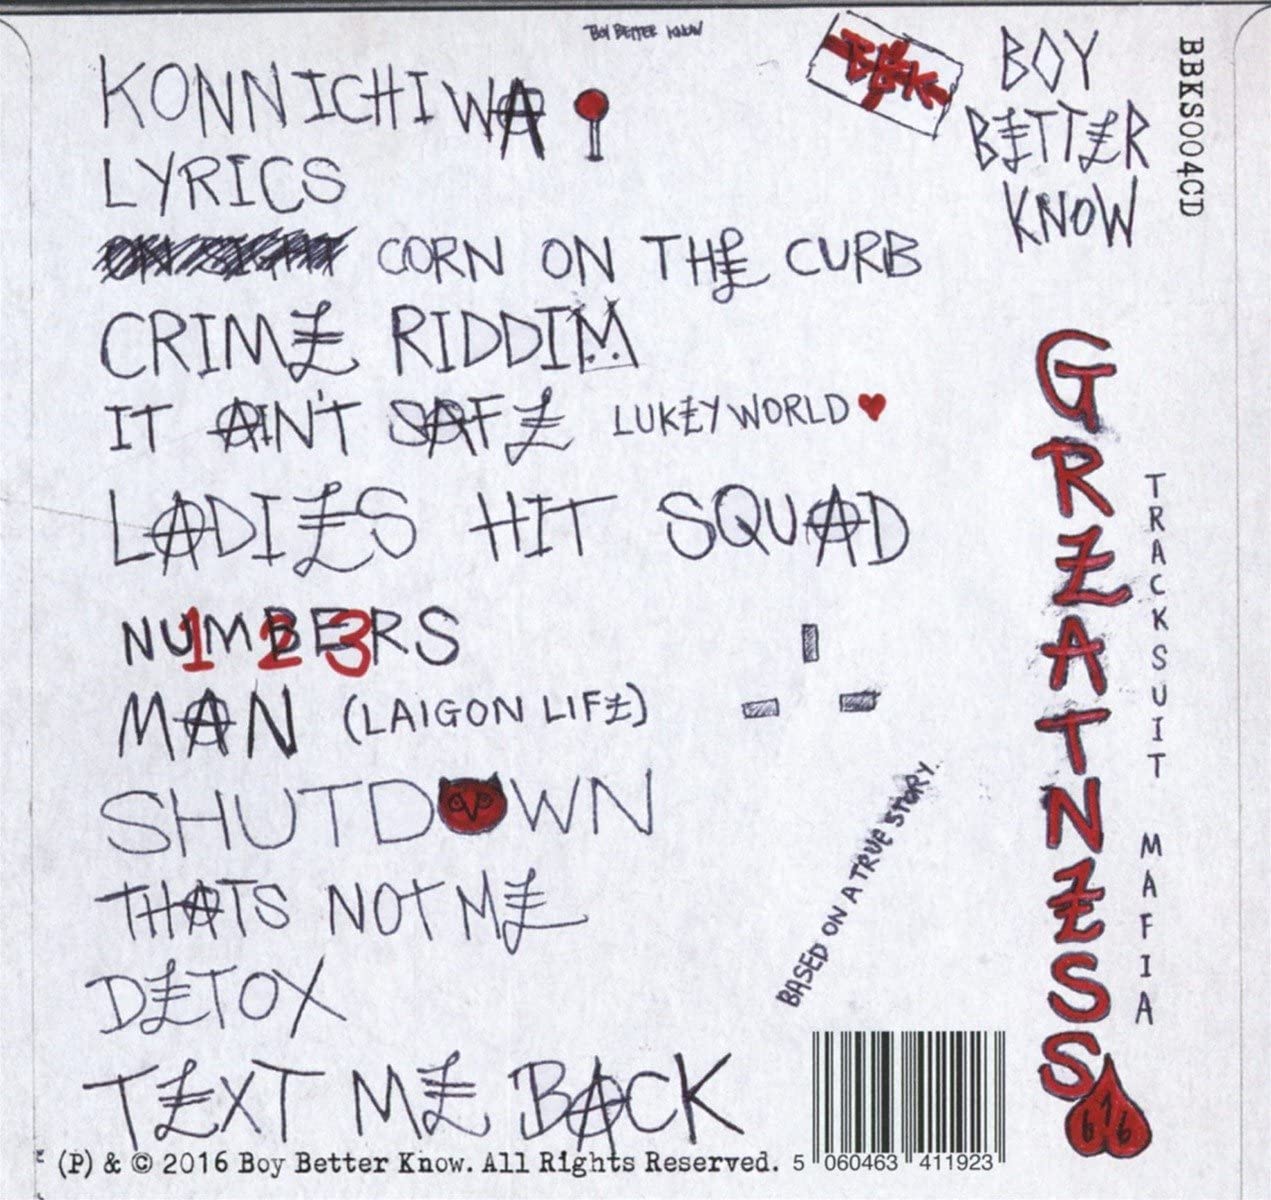 BOY BETTER KNOW
KONNICHIWA
LYRICS
CORN ON THE CURB
CRIME RIDDIM
IT AIN'T SAFE LUKEY WORLD
LADIES HIT SQUAD
NUMBERS
1 2 3
MAN (LAIGON LIFE)
SHUTDOWN
THATS NOT ME
DETOX
TEXT ME BACK
(P) & © 2016 Boy Better Know. All Rights Reserved.
BBK
BOY
BETTER
KNOW
BBKS004CD
GREATNESS
TRACKSUIT MAFIA
BASED ON A TRUE STORY
5 060463 411923